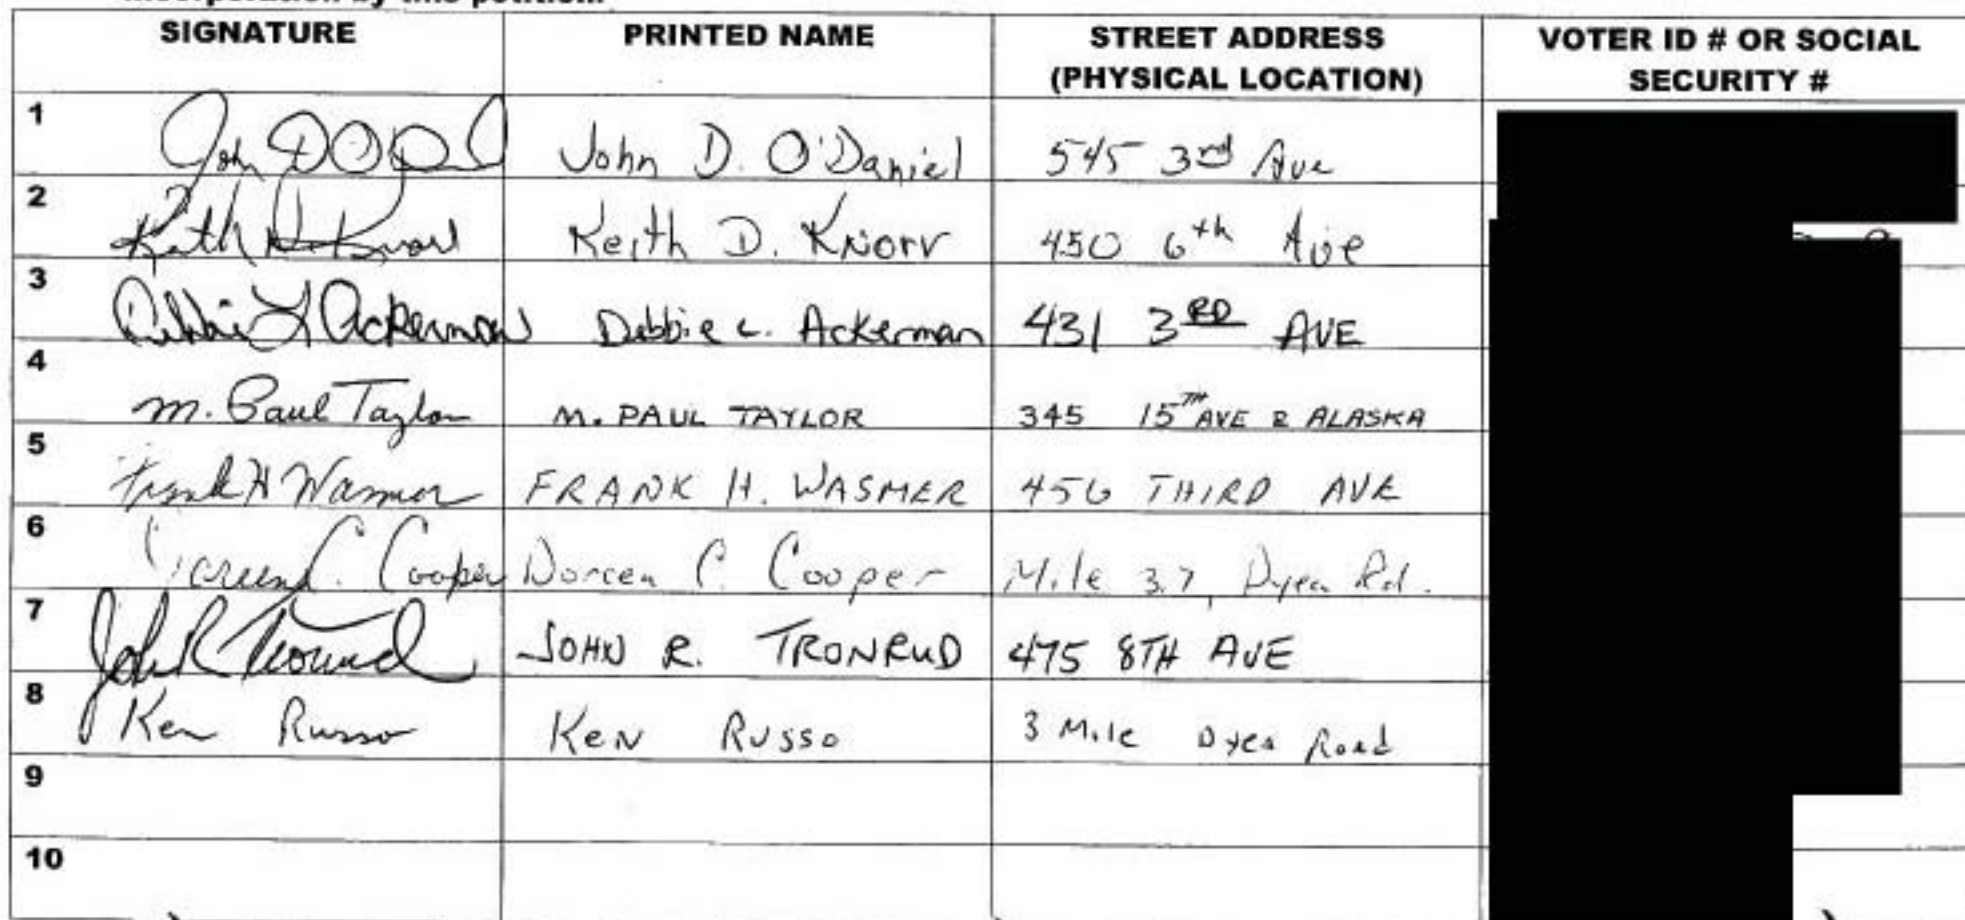 incorporation by this petition.
SIGNATURE PRINTED NAME STREET ADDRESS VOTER ID # OR SOCIAL
(PHYSICAL LOCATION) SECURITY #
1 John D O'Daniel John D. O'Daniel 545 3rd Ave
2 Keith D. Knorr Keith D. Knorr 450 6th Ave
3 Debbie L Ackerman Debbie L. Ackerman 431 3RD AVE
4 M. Paul Taylor M. PAUL TAYLOR 345 15TH AVE & ALASKA
5 Frank H Wasmer FRANK H. WASMER 456 THIRD AVE
6 Doreen C. Cooper Doreen C. Cooper Mile 3.7, Dyea Rd.
7 John R Tronrud JOHN R. TRONRUD 475 8TH AVE
8 Ken Russo Ken Russo 3 Mile Dyea Road
9
10